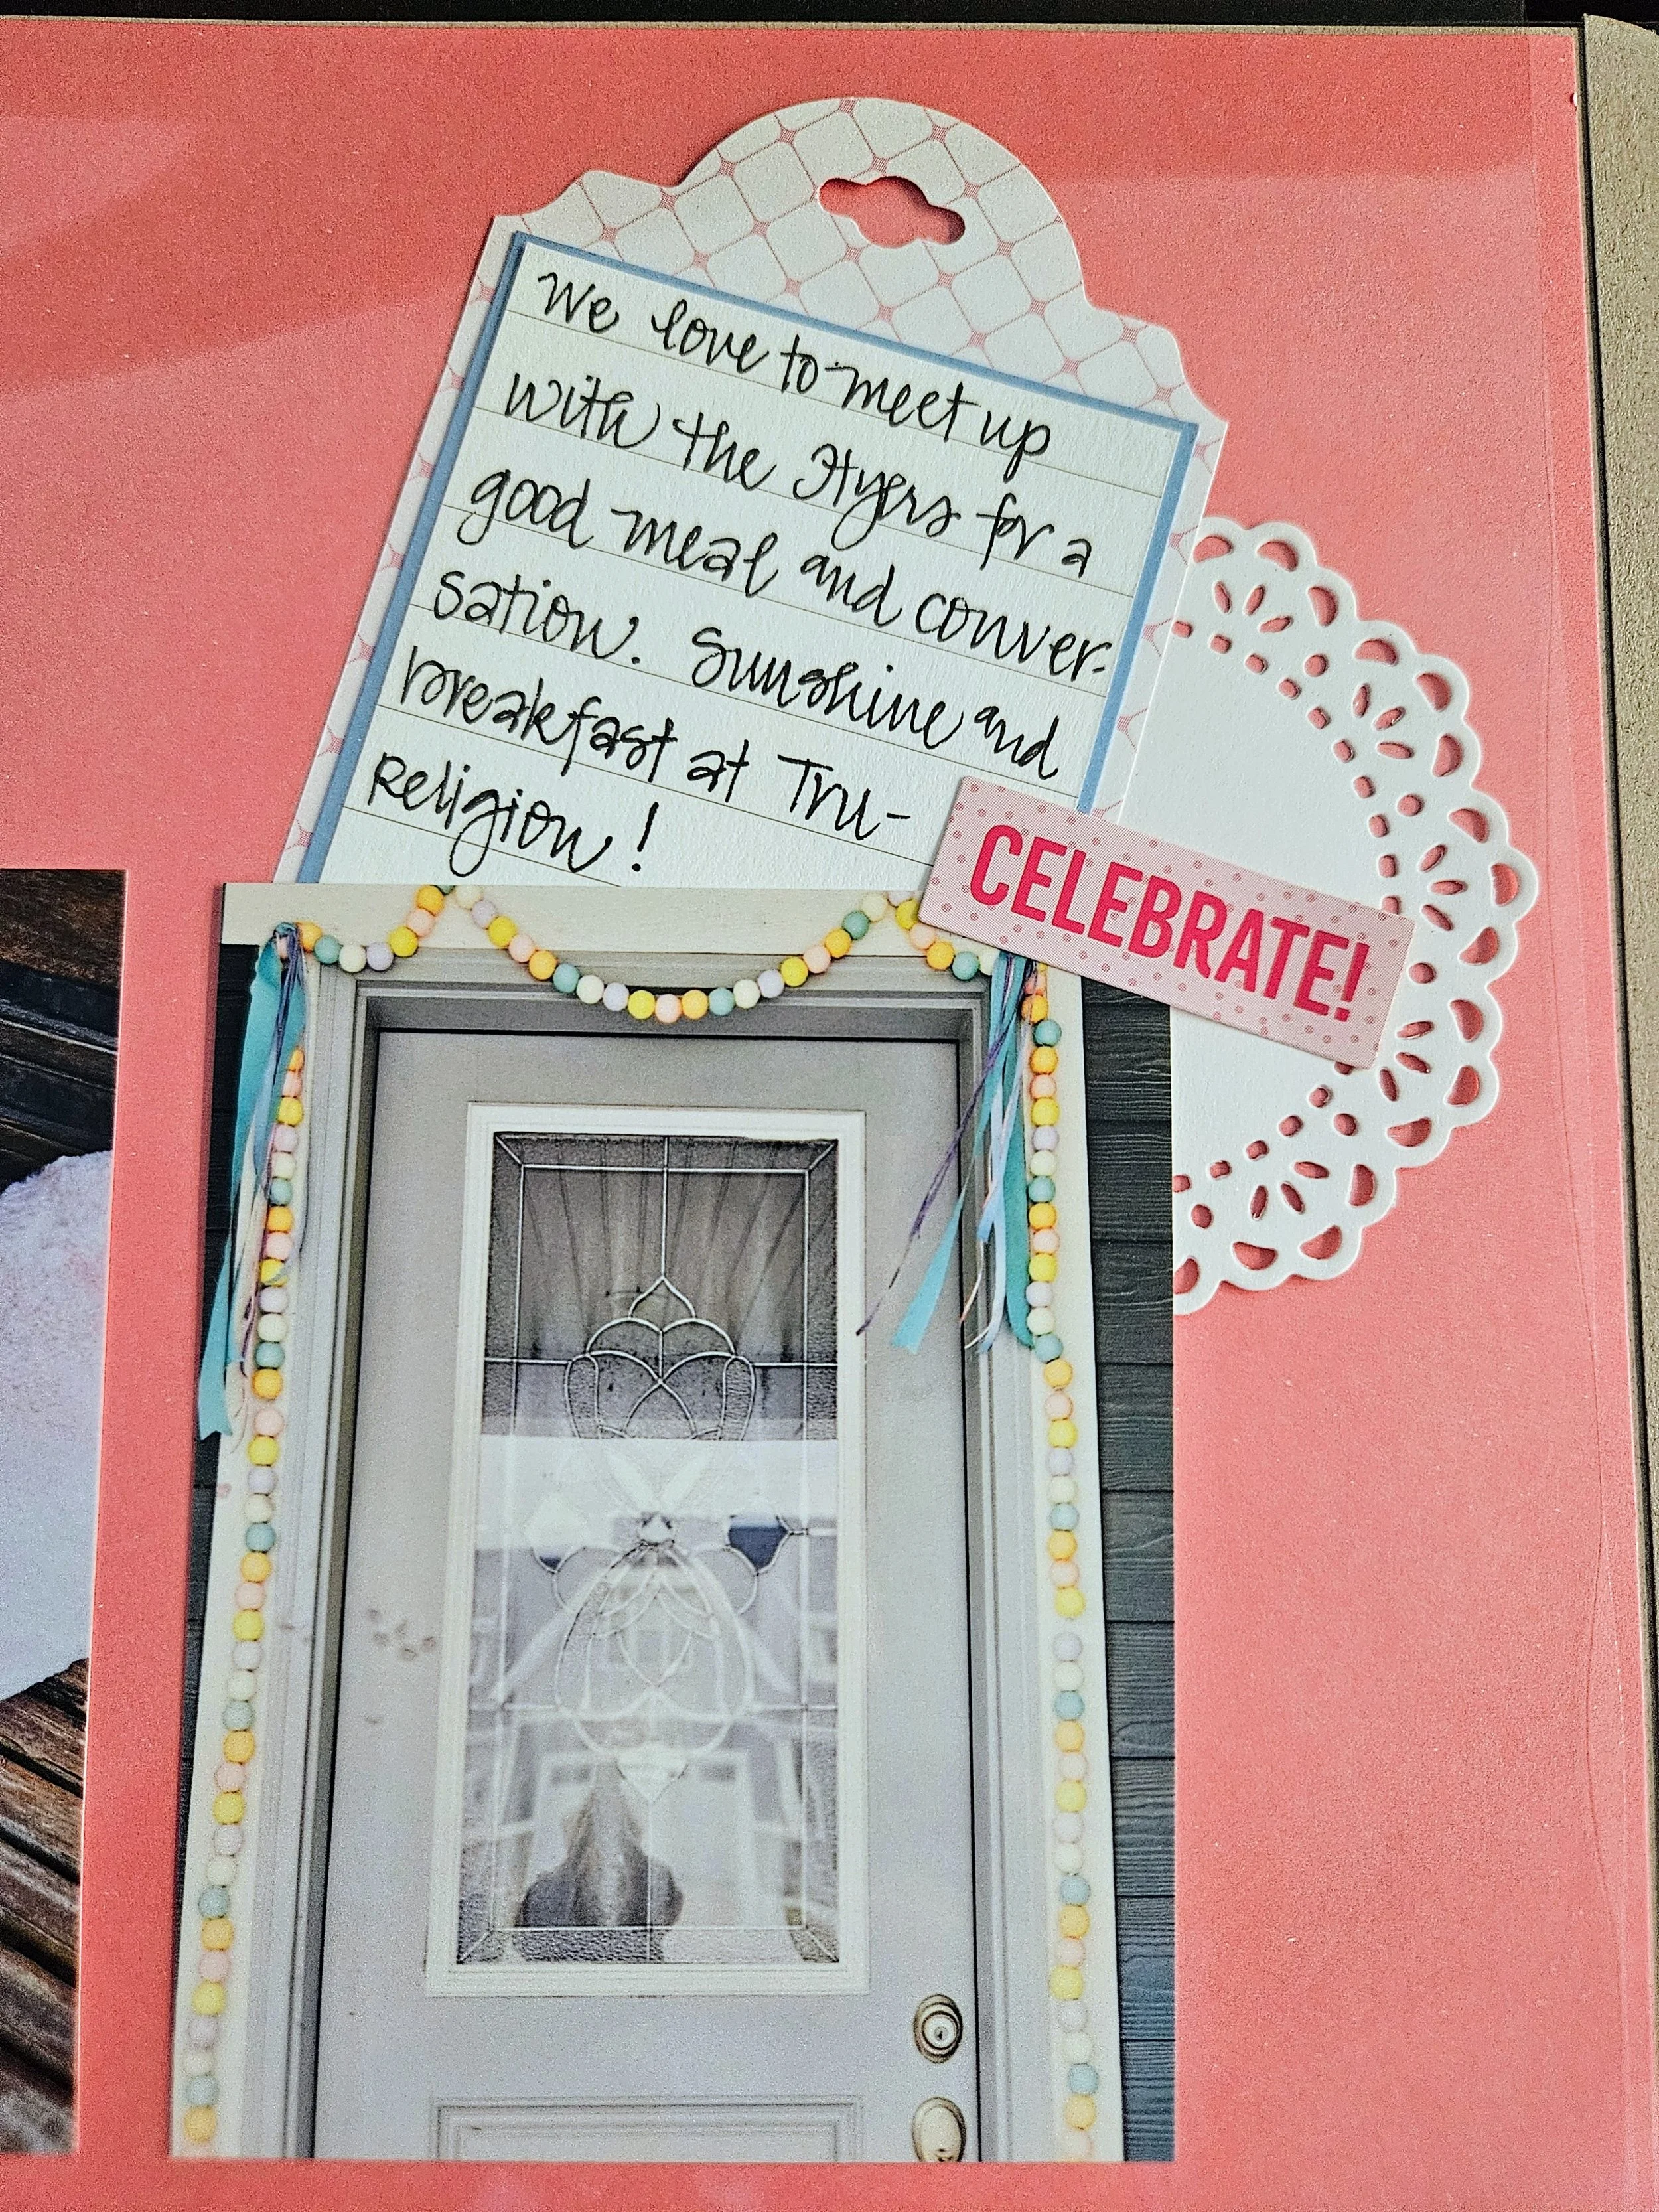 We love to meet up
with the Hyers for a
good meal and conver-
sation. Sunshine and
breakfast at Tru-
Religion!
CELEBRATE!